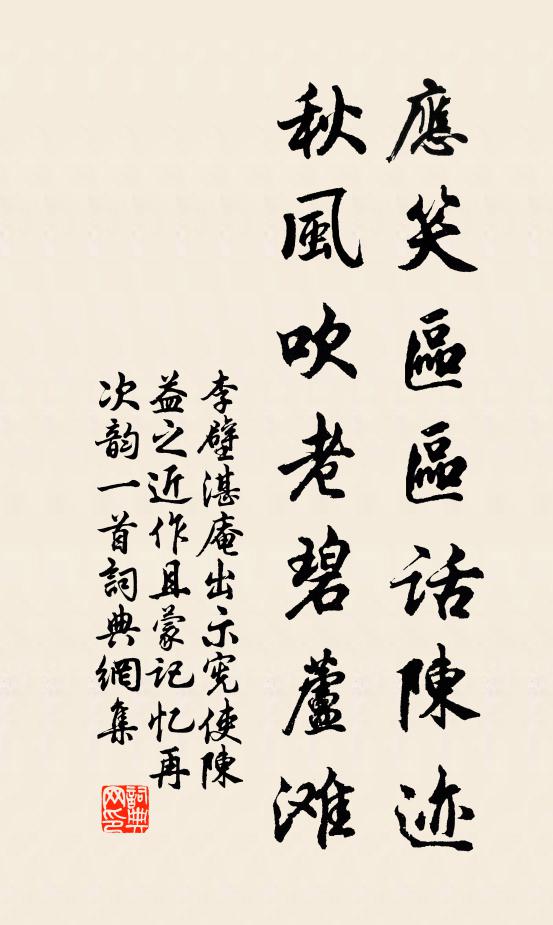 應笑區區話陳迹
秋風吹老碧蘆滩
李壁湛庵出示宪使陳
益之近作且蒙记忆再
次韵一首詞典網集
詞典
网印